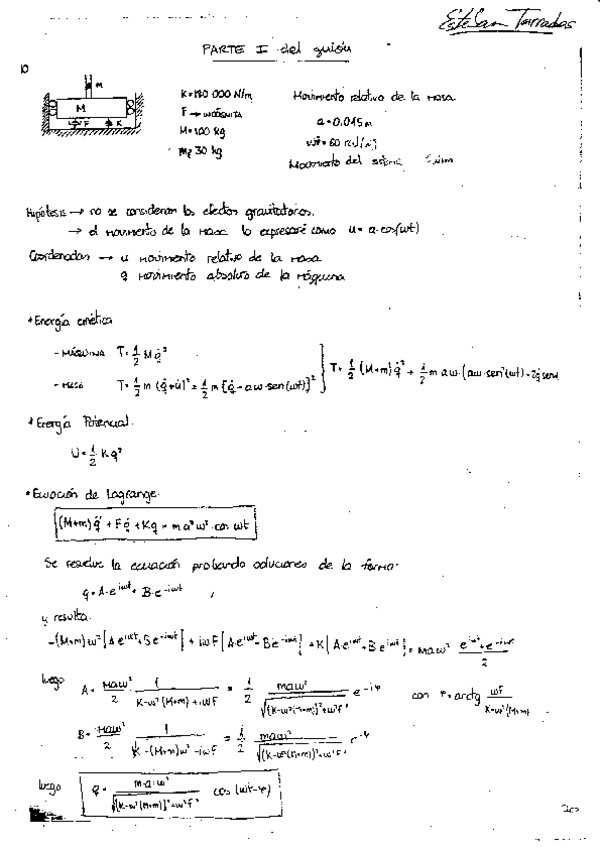 Esteban Tarradas
PARTE I del guión
10
m
M
F K
K=180 000 N/m
F → INCÓGNITA
M=100 kg
m= 30 kg
Movimiento relativo de la masa
a=0.015m
w=60 rad/s
Movimiento del
Hipótesis → no se consideran los efectos gravitatorios.
→ el movimiento de la masa lo expresaré como u= a·cos(wt)
Coordenadas → u movimiento relativo de la masa
q movimiento absoluto de la máquina
* Energía cinética
- MÁQUINA T= 1/2 M q̇²
- MASA T= 1/2 m (q̇+u̇)² = 1/2 m [q̇ - aw·sen(wt)]²
T= 1/2 (M+m) q̇² + 1/2 m aw·(aw·sen²(wt) - 2q̇ sen
* Energía Potencial.
U= 1/2 Kq²
* Ecuación de Lagrange.
(M+m)q̈ + Fq̇ + Kq = m a w²·cos wt
Se resuelve la ecuación probando soluciones de la forma:
q= A·e^iwt + B·e^-iwt
y resulta.
-(M+m)w² [A e^iwt + B e^-iwt] + iwF [A e^iwt - B e^-iwt] + K [A·e^iwt + B e^-iwt] = maw² (e^iwt + e^-iwt)/2
luego A= maw²/2 · 1/(K-w²(M+m)+iwF) = 1/2 maw²/√([K-w²(M+m)]²+w²F²) e^-iφ con φ=arctg wF/(K-w²(M+m)
B= maw²/2 · 1/(K-(M+m)w²-iwF) = 1/2 maw²/√([K-w²(M+m)]²+w²F²)
luego q= m·a·w²/√([K-w²(M+m)]²+w²F²) cos (wt-φ)